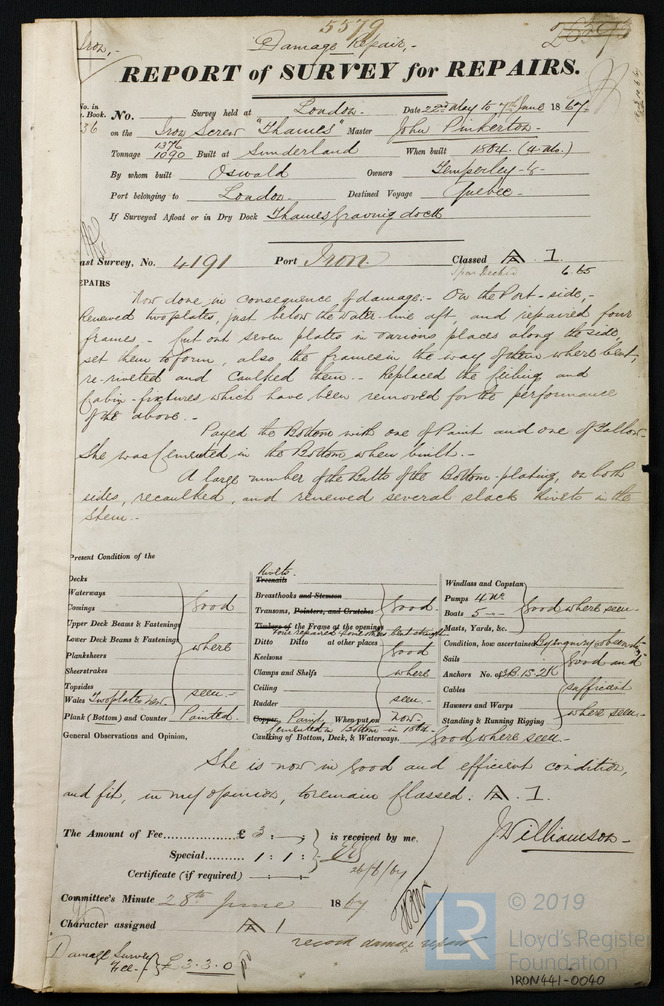 5579
Iron,-
Damage Repair,-
REPORT of SURVEY for REPAIRS.
No. in
Book.
36
No. Survey held at London. Date 22nd May to 7th June 1867.
on the Iron Screw "Thames" Master John Pinkerton
Tonnage 1376 1090 Built at Sunderland When built 1864. (4 Mo.)
By whom built Oswald Owners Temperley &c
Port belonging to London Destined Voyage Quebec
If Surveyed Afloat or in Dry Dock Thames Graving dock
ast Survey, No. 4191 Port Iron. Classed A 1.
Spar Decked 6 65
EPAIRS
Now done in consequence of damage:- On the Port-side,-
Renewed two plates, just below the water-line aft, and repaired four
frames,- Cut out seven plates in various places along the side,
set them to form, also, the frames in the way of them where bent,
re-riveted and Caulked them.- Replaced the Ceiling and
Cabin-fixtures which have been removed for the performance
of the above.-
Payed the Bottom with one of Paint and one of Tallow
She was Cemented in the Bottom when built.-
A large number of the Butts of the Bottom-plating, on both
sides, recaulked, and renewed several slack Rivets in the
Stem.-
Present Condition of the
Decks
Waterways
Comings
Upper Deck Beams & Fastenings
Lower Deck Beams & Fastenings
Planksheers
Sheerstrakes
Topsides
Wales Two plates new
Plank (Bottom) and Counter Painted.
Good
where
seen.-
Rivets.
Treenails
Breasthooks and Stemson
Transoms, Pointers, and Crutches
Timbers of the Frame at the openings
Four repaired some others bent straight
Ditto Ditto at other places
Keelsons
Clamps and Shelfs
Ceiling
Rudder
Copper, Paint, When put on now
Cemented in Bottom in 1864.-
Caulking of Bottom, Deck, & Waterways.- Good where seen.-
Good
Good
where
seen.-
Windlass and Capstan
Pumps 4 No
Boats 5 --
Masts, Yards, &c.
Good where seen
Condition, how ascertained By inquiry & observation
Sails
Anchors No. of 3B.1S.2K
Cables
Hawsers and Warps
Standing & Running Rigging
Good and
sufficient
where seen.-
General Observations and Opinion,
She is now in Good and efficient condition,
and fit, in my opinion, to remain Classed. A 1.
J Williamson
The Amount of Fee £ 3 : - : is received by me,
Special 1 : 1 :
26/6/67
Certificate (if required)
Committee's Minute 28th June 1867
Character assigned A 1
record damage repair
Damage Survey
Fee.- } £3.3.0 pd
LR
© 2019
Lloyd's Register
Foundation
IRON441-0040